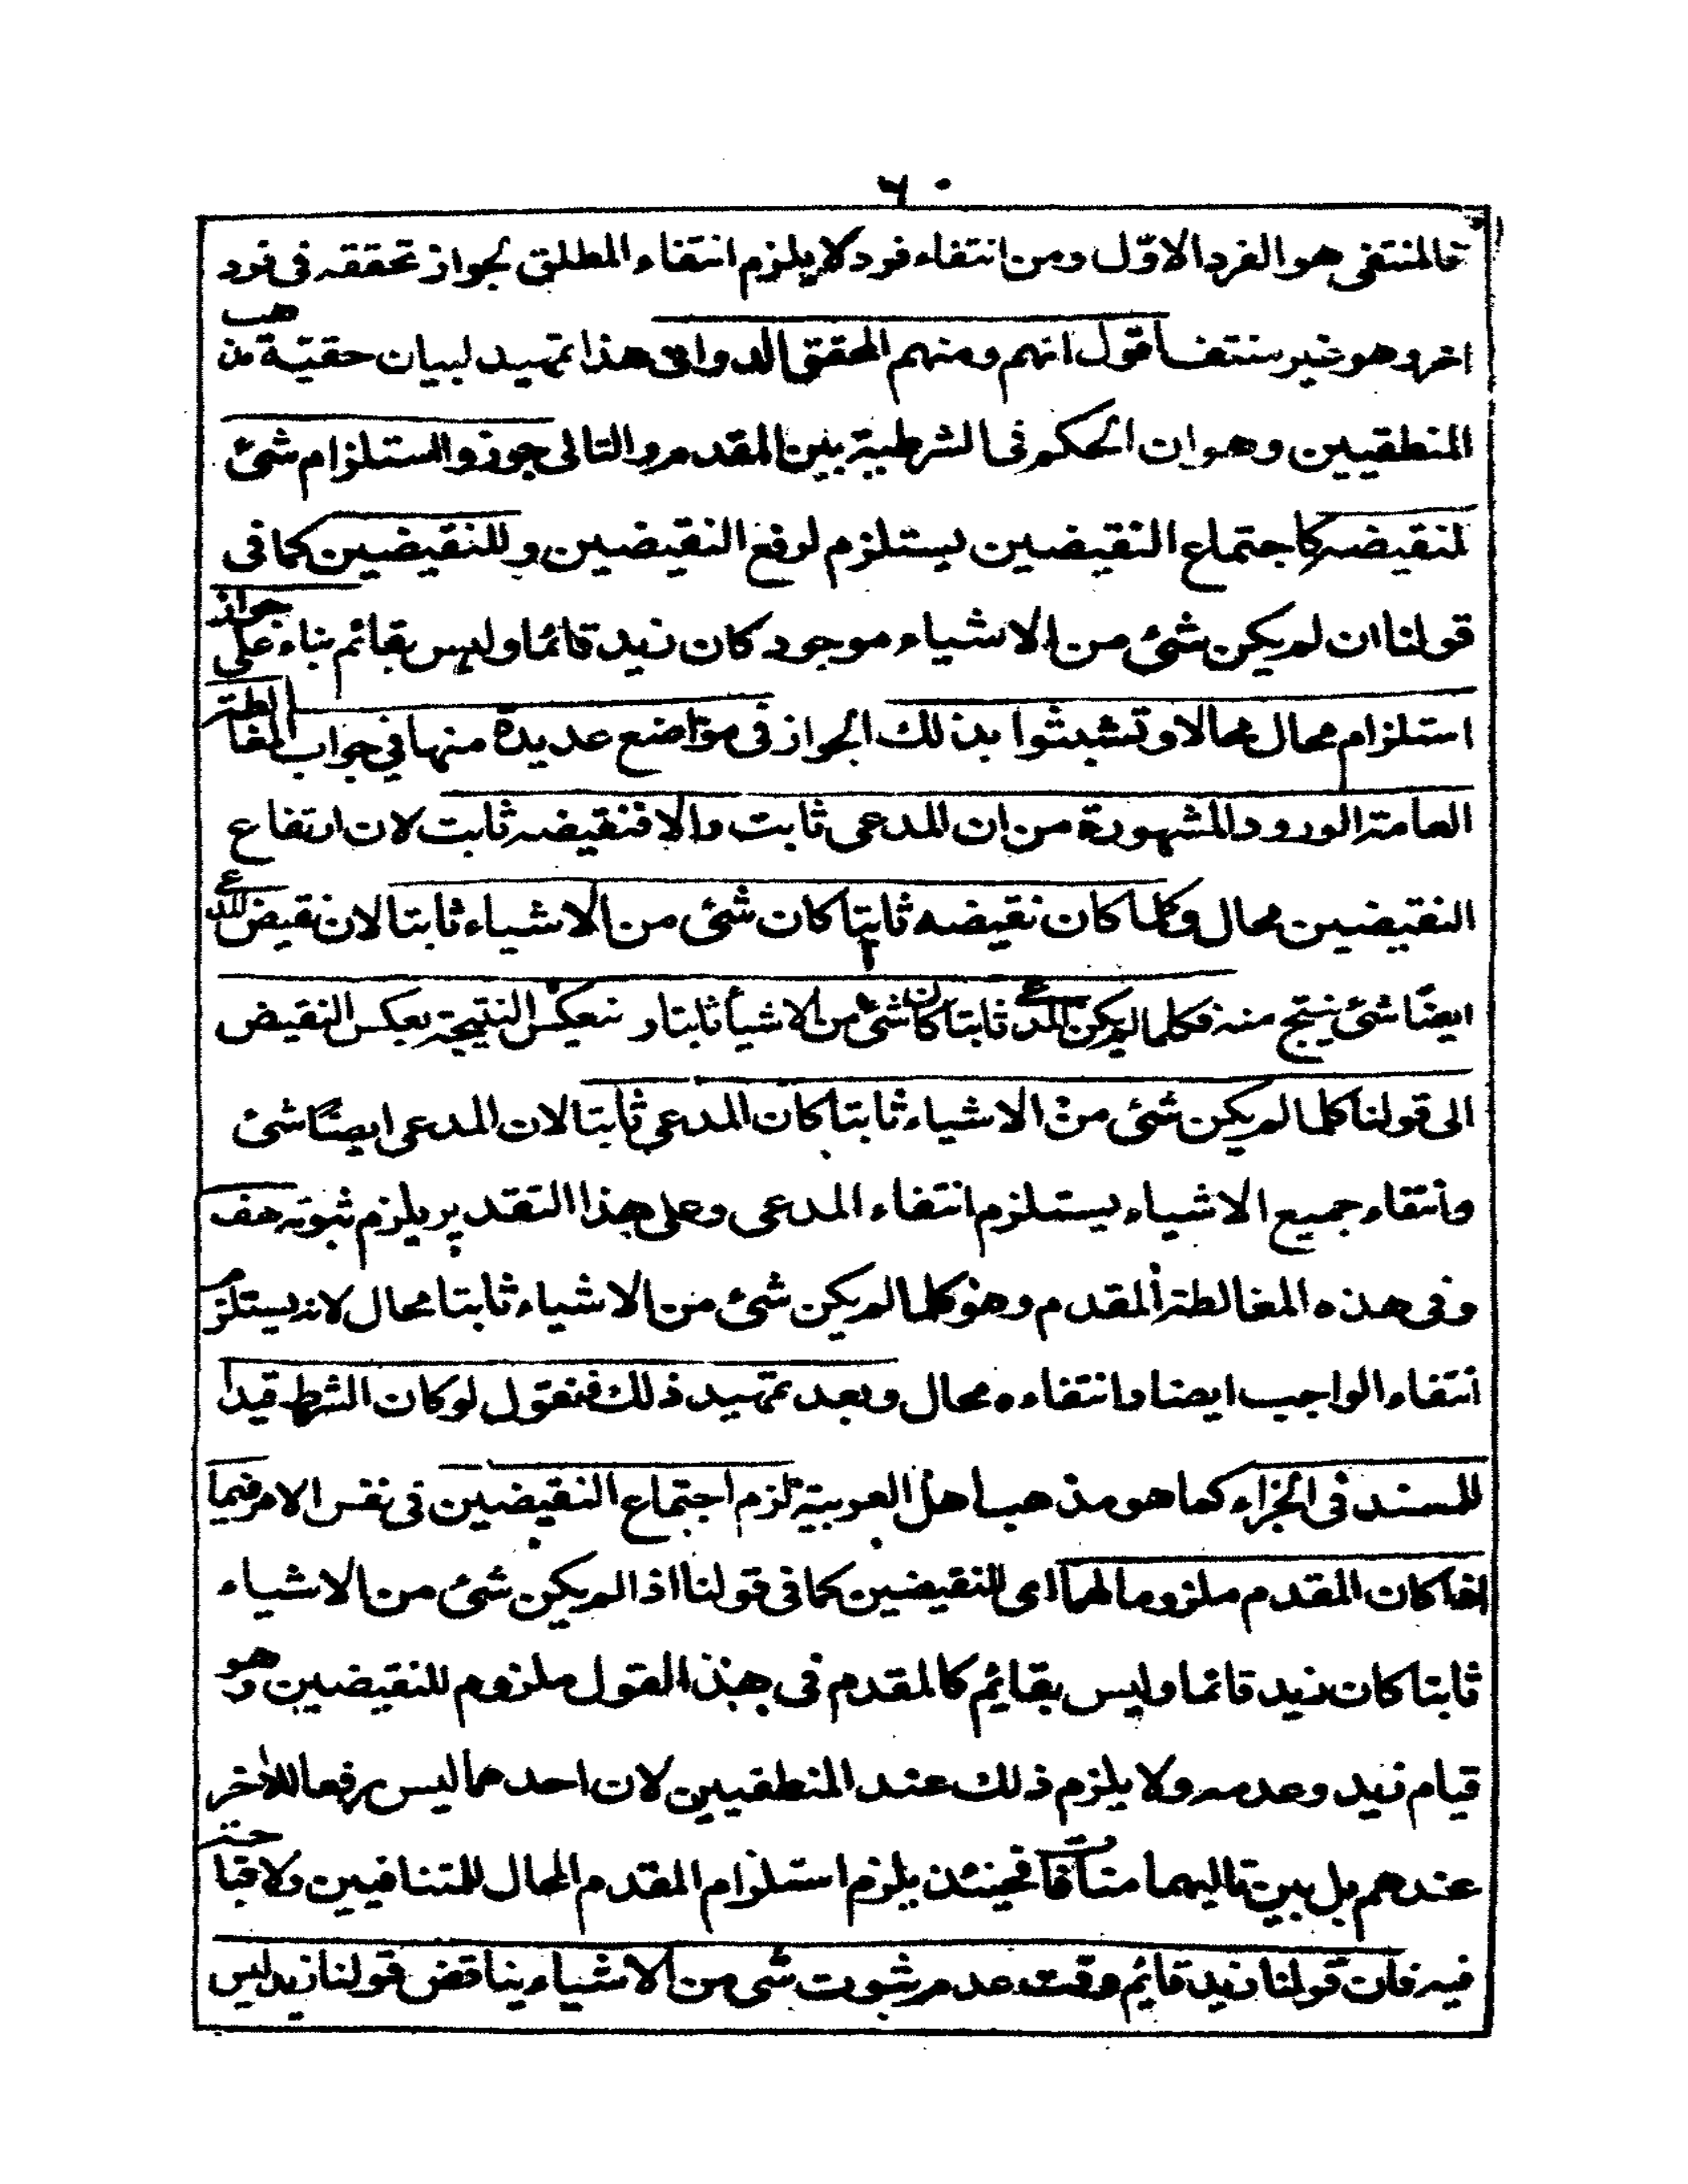 ٦٠
فالمنتفى هو الفرد الاوّل ومن انتفاء فرد لا يلزم انتفاء المطلق لجواز تحققه فى فرد
اخر وهو غير منتف اقول انهم ومنهم المحقق الدوانى هذا تمهيد لبيان حقيّة مذهب
المنطقيين وهو ان الحكم فى الشرطية بين المقدم والتالى جوزوا استلزام شئ
لنقيضه كاجتماع النقيضين يستلزم لرفع النقيضين وللنقيضين كما فى
قولنا ان لم يكن شئ من الاشياء موجود كان زيد قائما وليس بقائم بناء على جواز
استلزام محال محالا وتشبثوا بذلك الجواز فى مواضع عديدة منها فى جواب المغالطة
العامة الورود المشهورة من ان المدعى ثابت والا فنقيضه ثابت لان ارتفاع
النقيضين محال وكلما كان نقيضه ثابتا كان شئ من الاشياء ثابتا لان نقيض المدعى
ايضًا شئ ينتج منه فكلما لم يكن المدعى ثابتا كان شئ من الاشيأ ثابتا و تنعكس النتيجة بعكس النقيض
الى قولنا كلما لم يكن شئ من الاشياء ثابتا كان المدعى ثابتا لان المدعى ايضًا شئ
وانتفاء جميع الاشياء يستلزم انتفاء المدعى وعلى هذا التقدير يلزم ثبوته هف
وفى هذه المغالطة المقدم وهو كلما لم يكن شئ من الاشياء ثابتا محال لانه يستلزم
انتفاء الواجب ايضا وانتفاءه محال وبعد تمهيد ذلك فنقول لو كان الشرط قيدا
للمسند فى الجزاء كما هو مذهب اهل العربية لزم اجتماع النقيضين فى نفس الامر فيما
اذا كان المقدم ملزوما لهما اى للنقيضين كما فى قولنا اذا لم يكن شئ من الاشياء
ثابتا كان زيد قائما وليس بقائم كالمقدم فى هذا القول ملزوم للنقيضين وهو
قيام زيد وعدمه ولا يلزم ذلك عند المنطقيين لان احدهما ليس رفعا للاخر
عندهم بل بين تاليهما منافاة فحينئذ يلزم استلزام المقدم المحال للمتنافيين ولا قباحة
فيه فان قولنا زيد قايم وقت عدم ثبوت شى من الاشياء يناقض قولنا زيد ليس